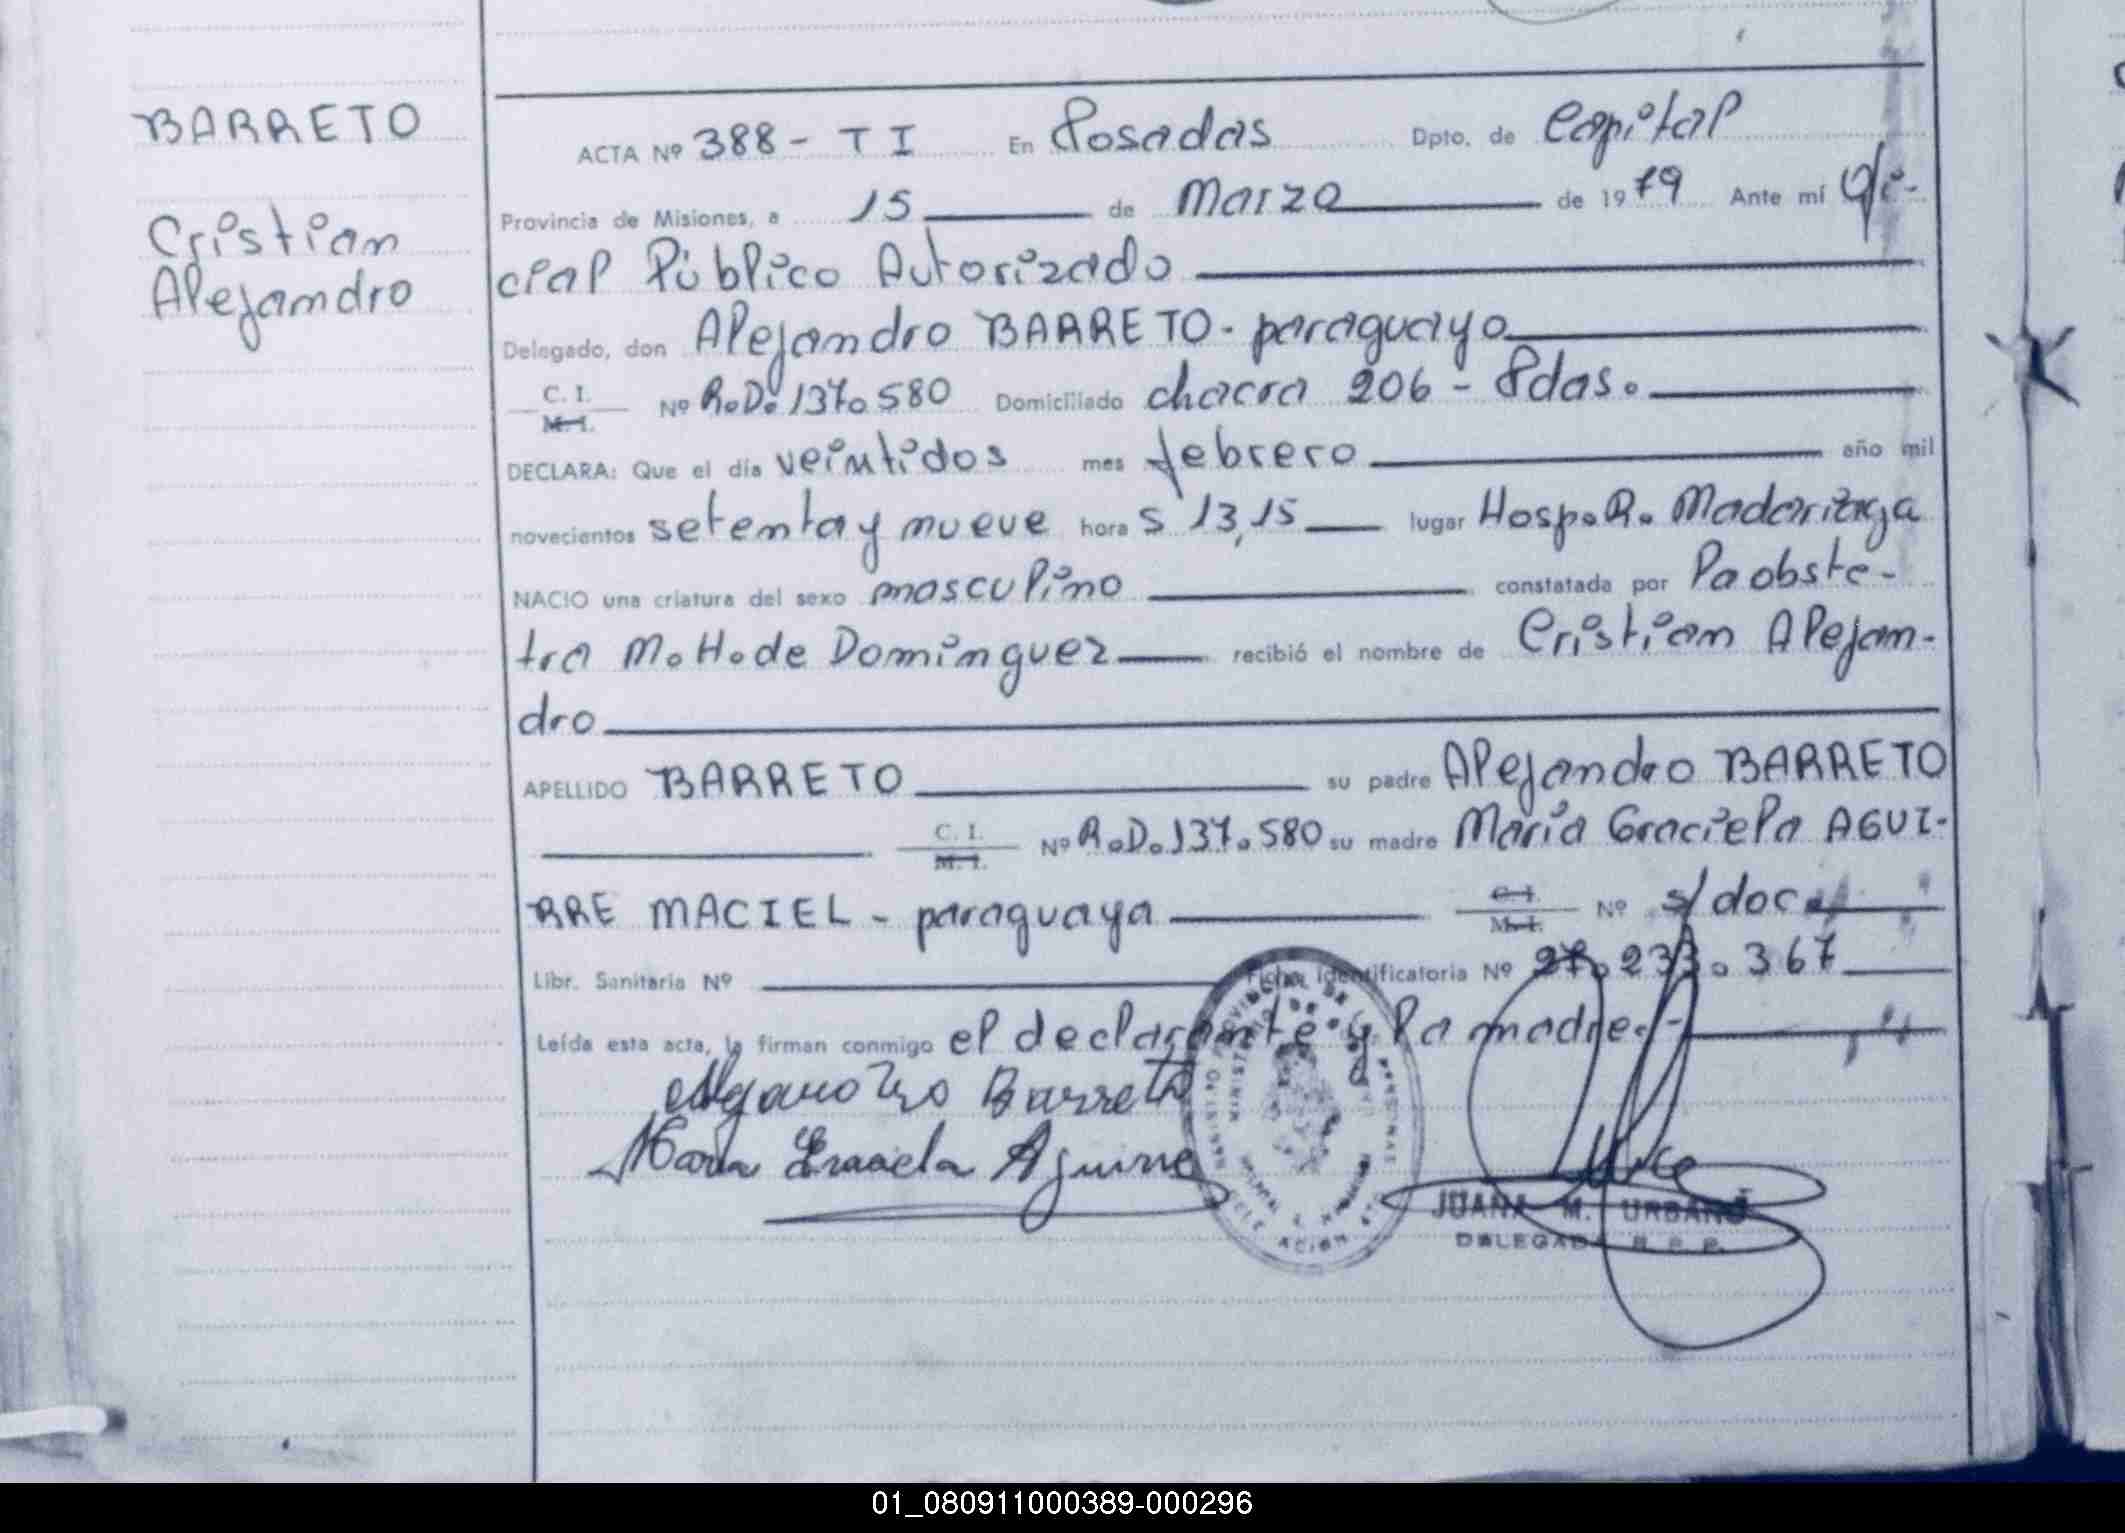 BARRETO
Cristian
Alejandro
ACTA Nº 388 - T I En Posadas Dpto. de Capital
Provincia de Misiones, a 15 de Marzo de 1979 Ante mí Ofi-
cial Público Autorizado
Delegado, don Alejandro BARRETO - paraguayo
C. I. M. I. Nº R.D. 137.580 Domiciliado chacra 206 - Pdas.
DECLARA: Que el día veintidos mes febrero año mil
novecientos setenta y nueve hora s 13,15 lugar Hosp. R. Madariaga
NACIO una criatura del sexo masculino constatada por la obste-
tra M. H. de Dominguez recibió el nombre de Cristian Alejan-
dro
APELLIDO BARRETO su padre Alejandro BARRETO
C. I. M. I. Nº R.D. 137.580 su madre María Graciela AGUI-
RRE MACIEL - paraguaya C. I. M. I. Nº s/doc.
Libr. Sanitaria Nº Ficha Identificatoria Nº 27.233.367
Leída esta acta, la firman conmigo el declarante y la madre.-
Alejandro Barreto
Maria Graciela Aguirre
JUANA M. URBANO
DELEGADA R. P. P.
01_080911000389-000296